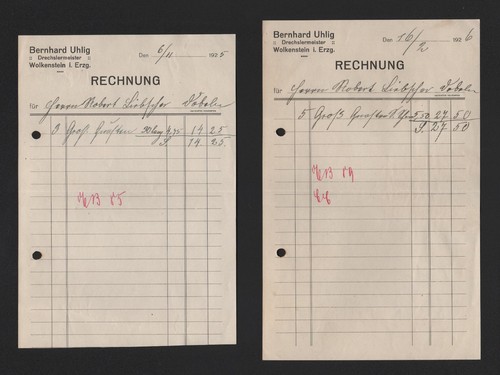 Bernhard Uhlig
Drechslermeister
Wolkenstein i. Erzg.
Den 6/11 1925
RECHNUNG
für Herrn Robert Liebscher Döbeln
3 Groß 4,75 14 25
S. 14 25.
Bernhard Uhlig
Drechslermeister
Wolkenstein i. Erzg.
Den 16/2 1926
RECHNUNG
für Herrn Robert Liebscher Döbeln
5 Groß 5,50 27 50
S. 27 50